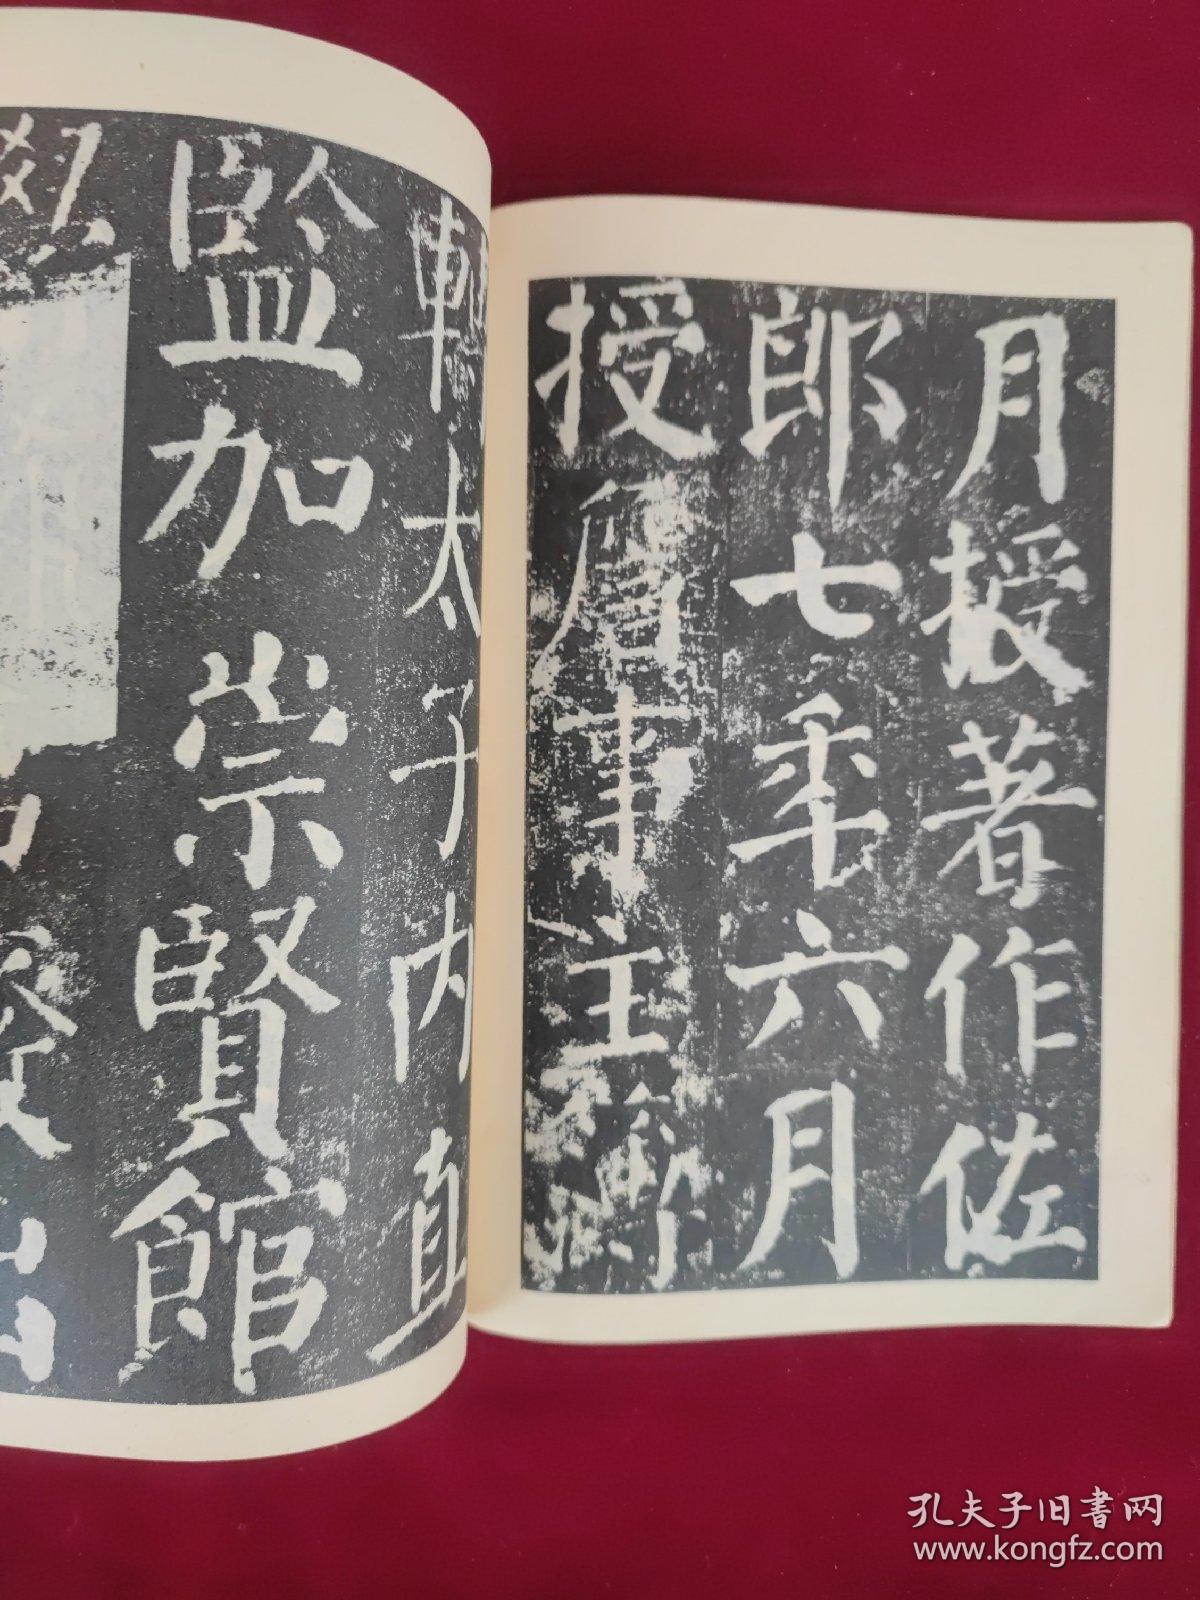 月授著作佐
郎七年六月
授詹事主簿
轉太子内直
監加崇賢館
廢出
孔夫子旧书网
www.kongfz.com